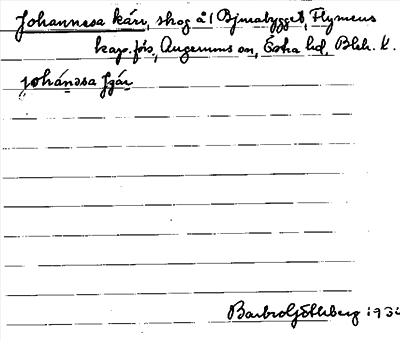 Johannesa kärr, skog å l Bjmabygget, Flymens
kap. förs, Augerums sn, Östra hd, Blek. l.
johánəsa
Barbro Götheberg 193